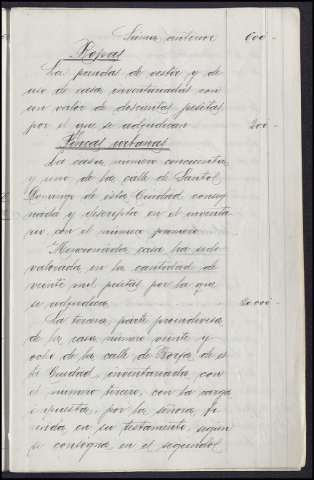 Suma anterior 600 -
Ropas
Las prendas de vestir y de
uso de casa inventariadas con
un valor de doscientas pesetas
por el que se adjudican 200 -
Fincas urbanas
La casa número cincuenta
y uno de la calle de Santo
Domingo de esta Ciudad consig
nada y descripta en el inventa
rio con el número primero
Mencionada casa ha sido
valorada en la cantidad de
veinte mil pesetas por la que
se adjudica 20.000 -
La tercera parte proindivisa
de la casa número veinte y
ocho de la calle de Borja de es
ta Ciudad inventariada con
el número tercero, con la carga
impuesta, por la señora fi
nada en su testamento, segun
se consigna en el segundo